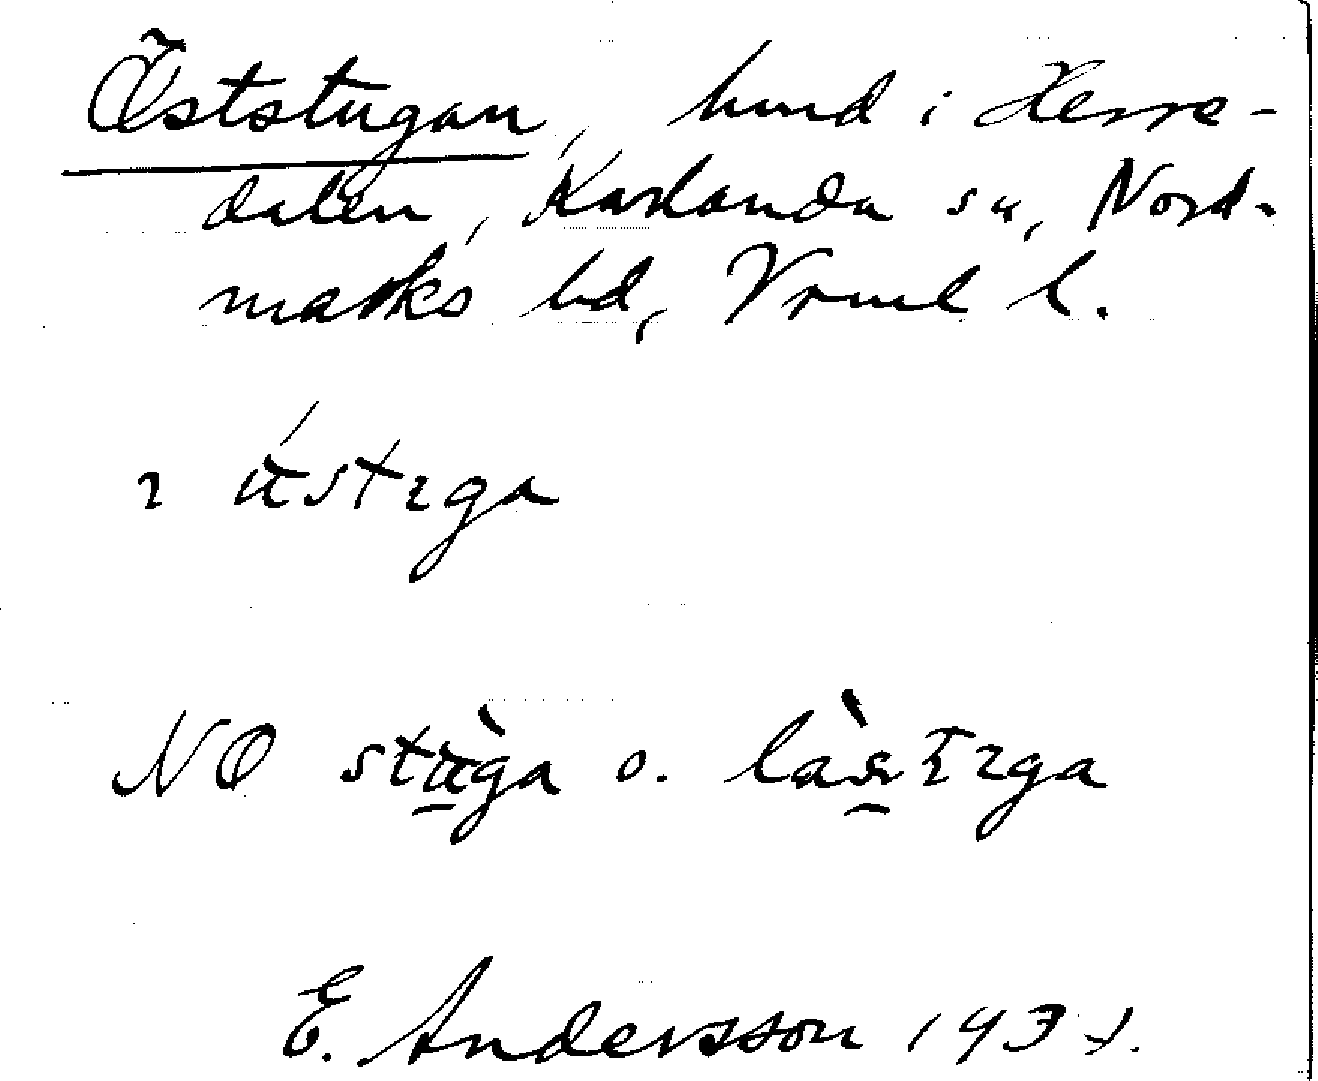 Öststugan, hmd i Herre-
dalen, Karlanda sn, Nord-
marks hd, Vrml l.
ɿ ústɿga
NO stùga o.
E. Andersson 193